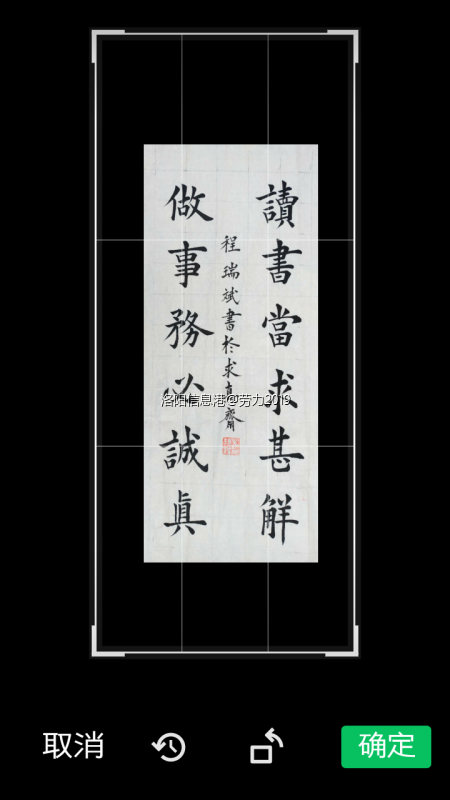 讀書當求甚解
程瑞斌書於求真齋
做事務必誠真
洛阳信息港@劳力2019
取消
确定